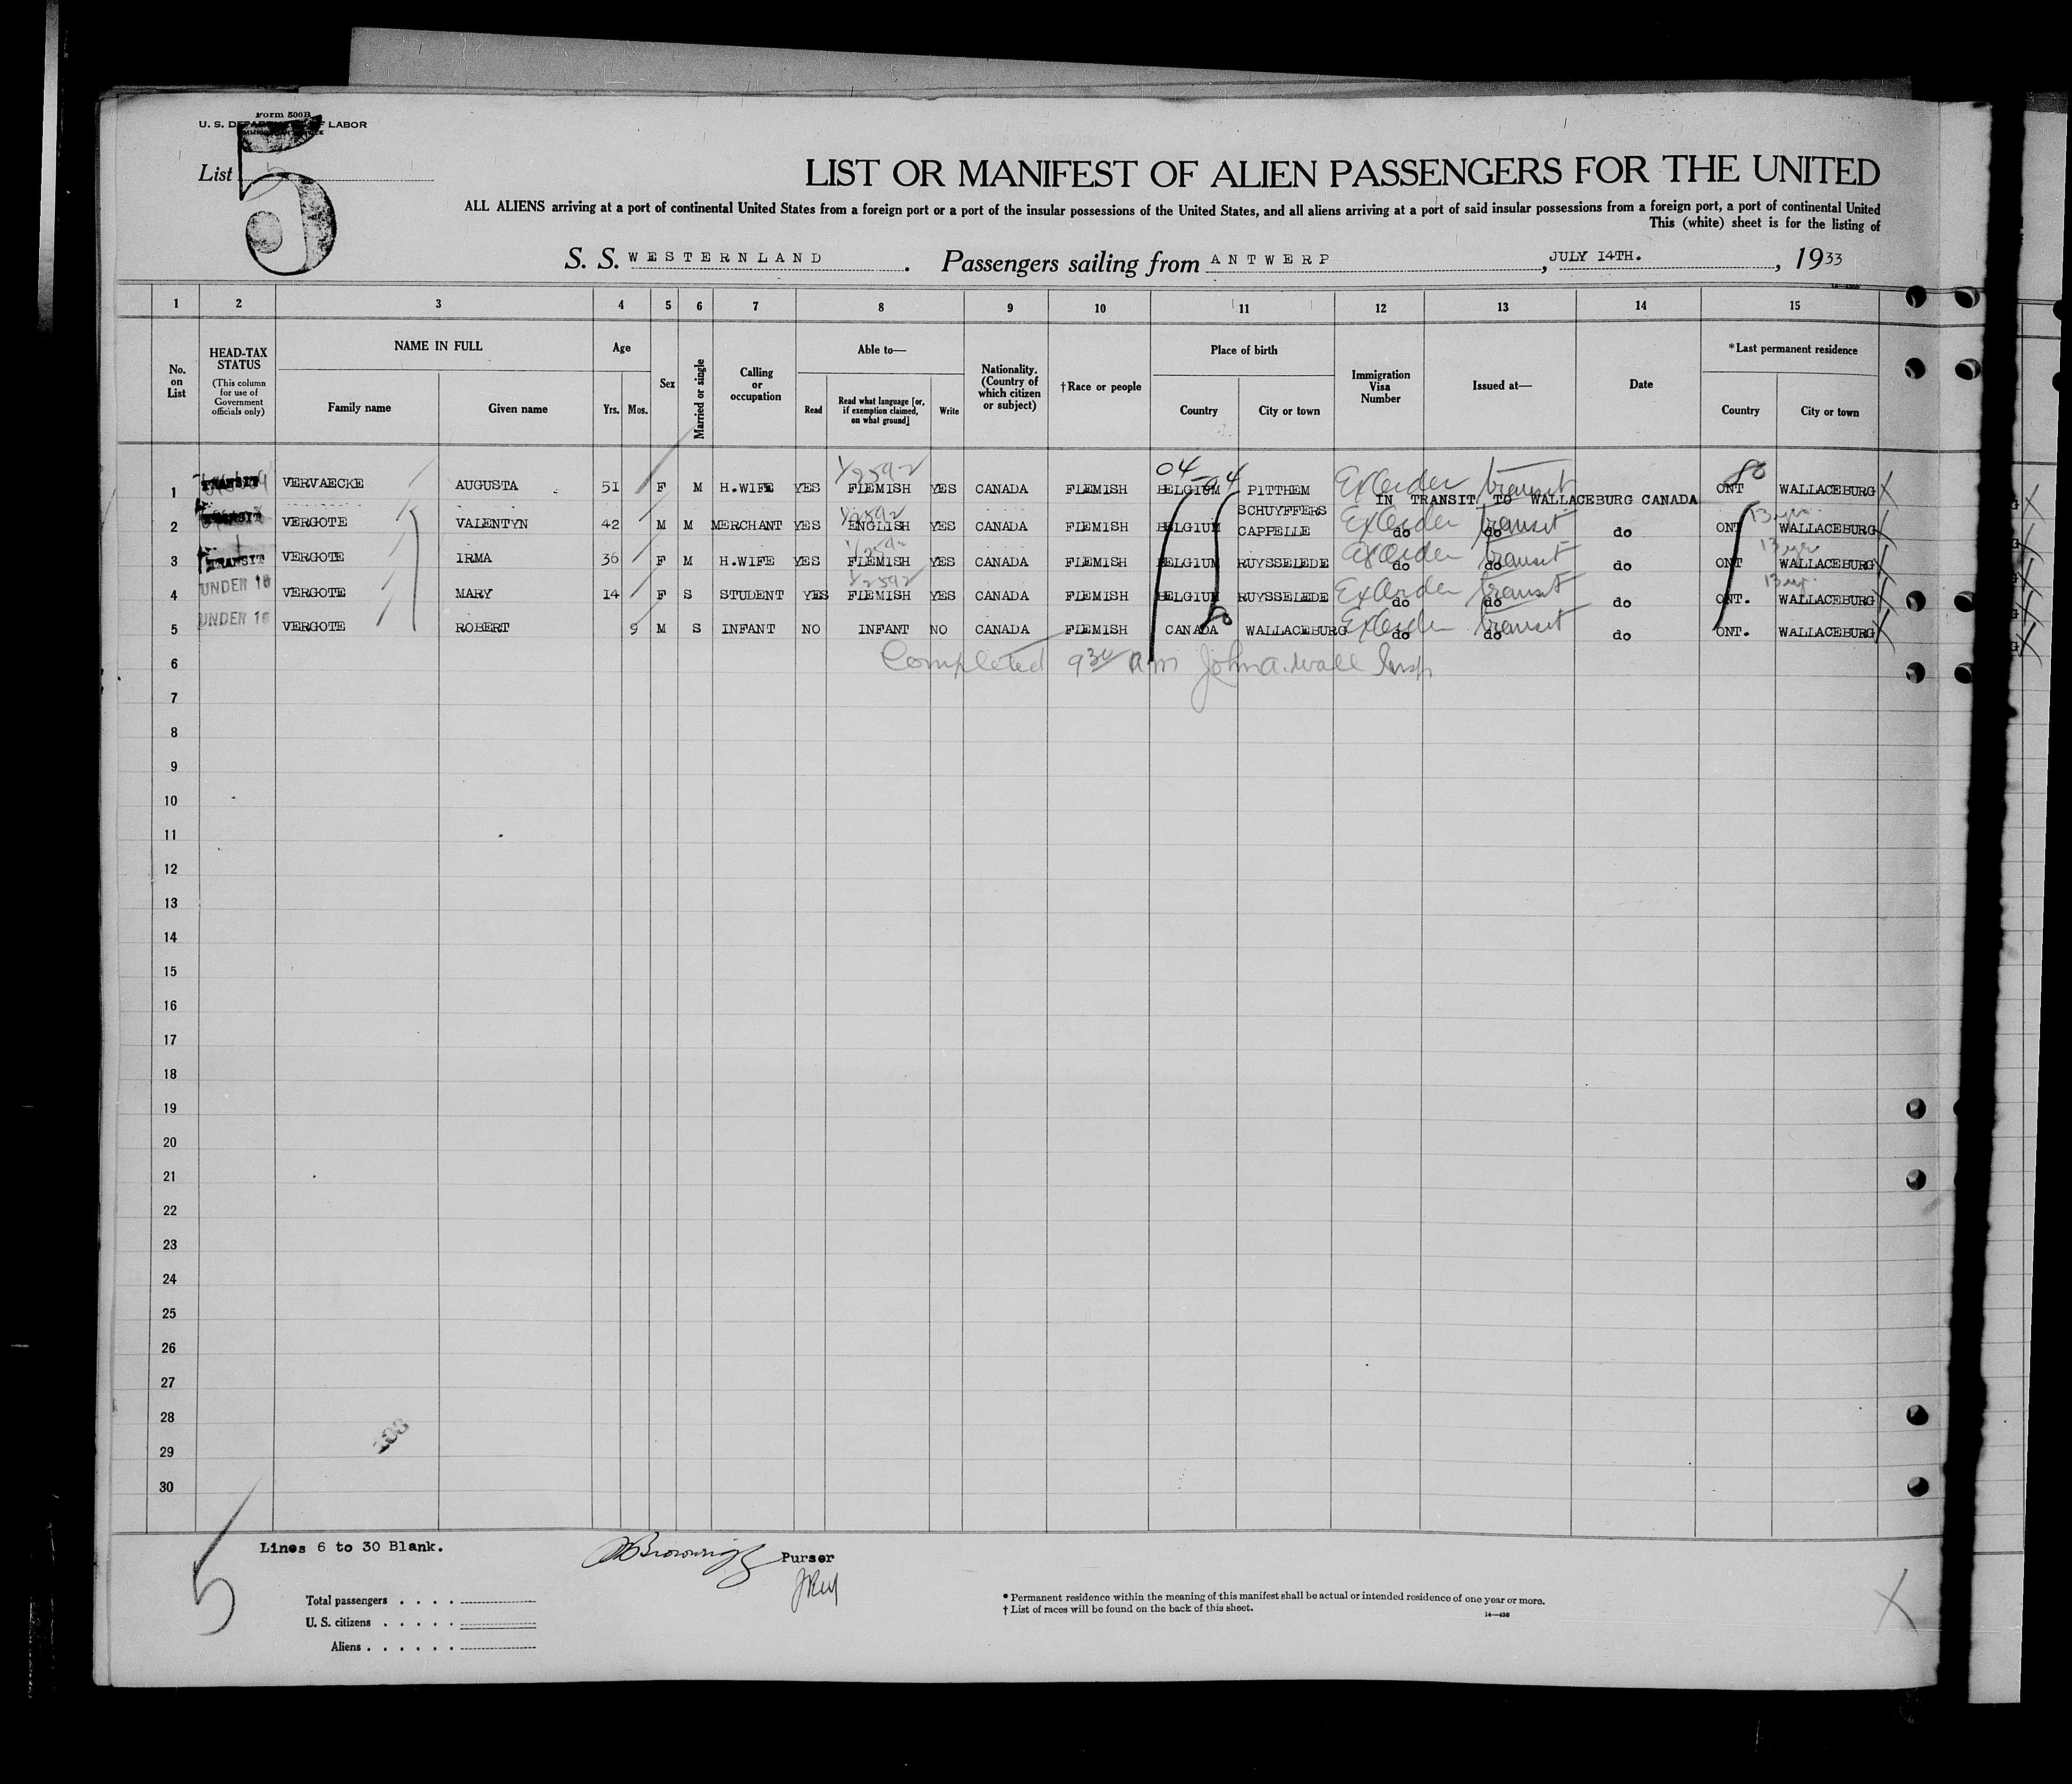 Form 500B
U. S. DEPARTMENT OF LABOR
List 5
5
LIST OR MANIFEST OF ALIEN PASSENGERS FOR THE UNITED
ALL ALIENS arriving at a port of continental United States from a foreign port or a port of the insular possessions of the United States, and all aliens arriving at a port of said insular possessions from a foreign port, a port of continental United
This (white) sheet is for the listing of
S. S. WESTERNLAND. Passengers sailing from ANTWERP, JULY 14TH., 1933
1 2 3 4 5 6 7 8 9 10 11 12 13 14 15
No. on List
HEAD-TAX STATUS (This column for use of Government officials only)
NAME IN FULL Family name Given name
Age Yrs. Mos.
Sex
Married or single
Calling or occupation
Able to— Read Read what language [or, if exemption claimed, on what ground] Write
Nationality. (Country of which citizen or subject)
†Race or people
Place of birth Country City or town
Immigration Visa Number
Issued at—
Date
*Last permanent residence Country City or town
1 TRANSIT VERVAECKE AUGUSTA 51 F M H.WIFE YES FLEMISH YES CANADA FLEMISH BELGIUM PITTHEM Ex Order transit ONT WALLACEBURG
IN TRANSIT TO WALLACEBURG CANADA
2 TRANSIT VERGOTE VALENTYN 42 M M MERCHANT YES ENGLISH YES CANADA FLEMISH BELGIUM SCHUYFFERS CAPPELLE Ex Order do transit do do ONT 13 yrs. WALLACEBURG
3 TRANSIT VERGOTE IRMA 36 F M H.WIFE YES FLEMISH YES CANADA FLEMISH BELGIUM RUYSSELEDE Ex Order do transit do do ONT 13 yrs WALLACEBURG
4 UNDER 16 VERGOTE MARY 14 F S STUDENT YES FLEMISH YES CANADA FLEMISH BELGIUM RUYSSELEDE Ex Order do transit do do ONT. 13 yrs. WALLACEBURG
5 UNDER 16 VERGOTE ROBERT 9 M S INFANT NO INFANT NO CANADA FLEMISH CANADA WALLACEBURG Ex Order do transit do do ONT. WALLACEBURG
6 Completed 9 30 am John A. Wall Insp
7
8
9
10
11
12
13
14
15
16
17
18
19
20
21
22
23
24
25
26
27
28
29
30
5
Lines 6 to 30 Blank.
Purser
Total passengers . . . .
U. S. citizens . . . . .
Aliens . . . . . .
* Permanent residence within the meaning of this manifest shall be actual or intended residence of one year or more.
† List of races will be found on the back of this sheet.
14—430